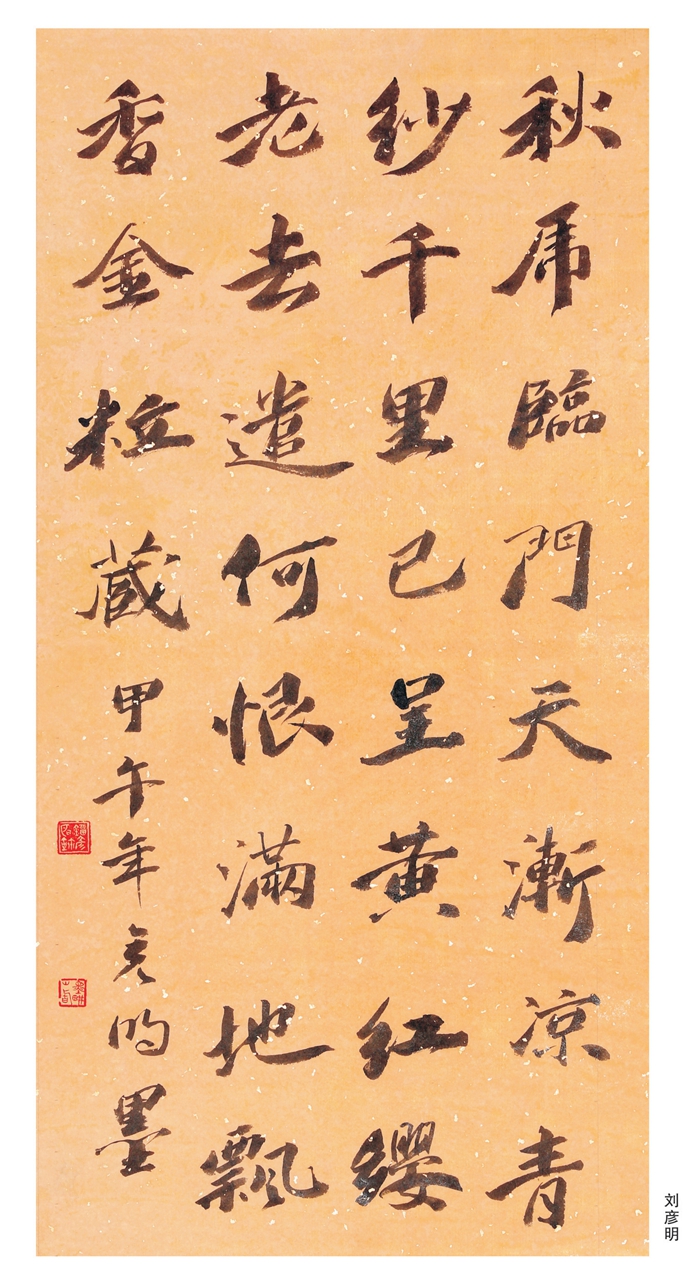 秋乕臨門天漸凉青
紗千里已呈黄紅纓
老去遺何恨滿地飄
香金粒蔵甲午年彦明墨
刘彦明